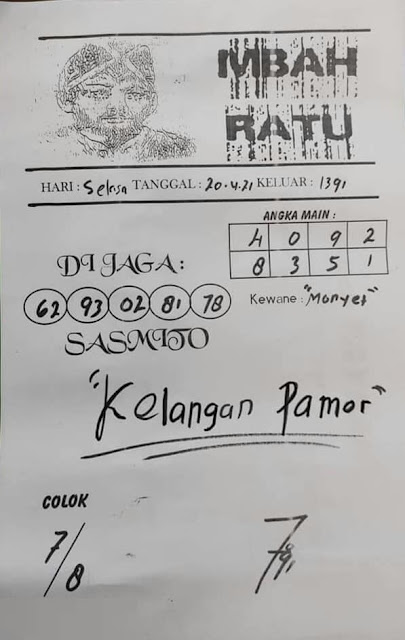 MBAH
RATU
HARI : Selasa TANGGAL : 20.4.21 KELUAR : 1391
ANGKA MAIN :
4 0 9 2
8 3 5 1
DI JAGA :
62 93 02 81 78
Kewane : "Monyet"
SASMITO
"Kelangan Pamor"
COLOK
7/8